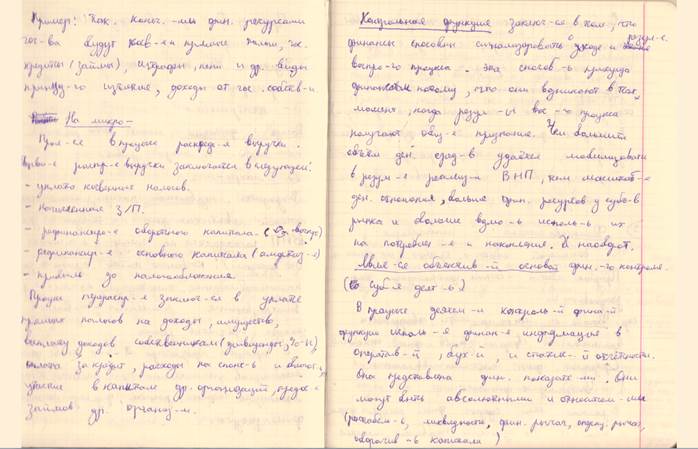 Пример: Так. конеч. -мы фин. ресурсами
гос-ва будут косв-е и прямые налоги, гос.
кредиты (займы), штрафы, пени и др. виды
принуд-го изъятия, доходы от гос. собств-и
На микро-
Проя-ся в процессе распред-я выручки.
распр-е выручки заключается в следующем:
- уплата косвенных налогов.
- начисление З/П.
- рефинансир-е оборотного капитала.
- рефинансир-е основного капитала (амортиз-я)
- прибыль до налогообложения.
Процесс перераспр-я заключ-ся в уплате
прямых налогов на доходы, имущество,
выплату доходов собственникам (дивиденды, %-ы),
оплата за кредит, расходы на
участие в капитале др. организаций, предос-е
займов др. организ-м.
Контрольная функция заключ-ся в том, что
финансы способны сигнализировать о ходе и резул-е
воспр-го процесса. Эта способ-ь присуща
финансам потому, что они возникают в тот
момент, когда резул-ы вос-го процесса
получают общ-е признание. Чем больший
объём ден. сред-в удаётся мобилизовать
в резул-е реализ-и ВНП, тем масштаб-е
ден. отношения, больше фин. ресурсов у субъ-в
рынка и больше возмо-ь исполь-ь их
на потреблен-е и накопление. И наоборот.
Явля-ся объектив-й основой фин-го контроля.
(Субъ-я деят-ь.)
В процессе деяте-и контроль-й финан-й
функции исполь-я финан-я информация в
оператив-й, бух-й, и статис-й отчётности.
Она представлена фин. показате-ми. Они
могут быть абсолютными и относител-ми
(рентабел-ь, ликвидность, фин. рычаг, операц. рычаг,
оборачив-ь капитала)